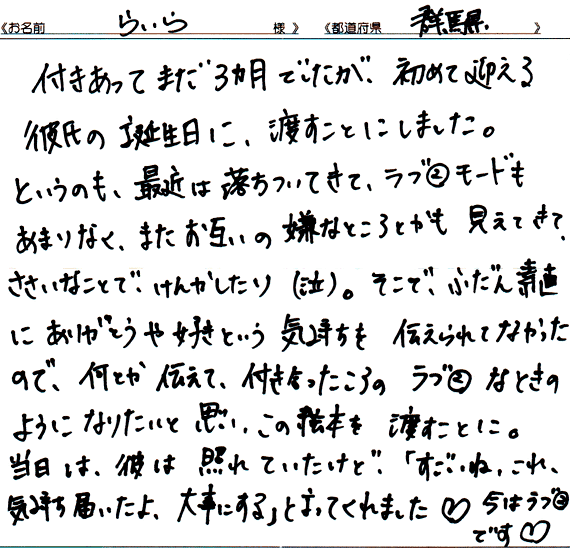 《お名前 らいら 様》 《都道府県 群馬県 》
付きあってまだ3ヵ月でしたが、初めて迎える
彼氏の誕生日に、渡すことにしました。
というのも、最近は落ちついてきて、ラブ②モードも
あまりなく、またお互いの嫌なところとかも見えてきて、
ささいなことで、けんかしたり(泣)。そこで、ふだん素直
にありがとうや好きという気持ちを伝えられてなかった
ので、何とか伝えて、付き合ったころのラブ②なときの
ようになりたいと思い、この絵本を渡すことに。
当日は、彼は照れていたけど、「すごいね、これ、
気持ち届いたよ、大事にする」と言ってくれました♡ 今はラブ②
です♡